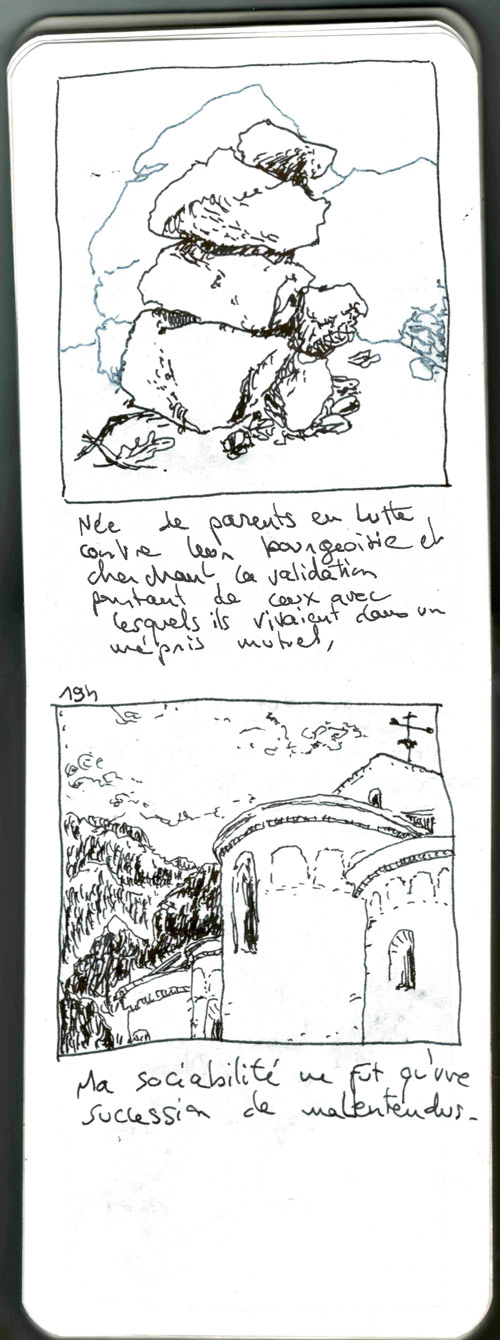 Née de parents en lutte
contre leur bourgeoisie et
cherchant la validation
pourtant de ceux avec
lesquels ils vivaient dans un
mépris mutuel,
19h
Ma sociabilité ne fut qu'une
succession de malentendus.